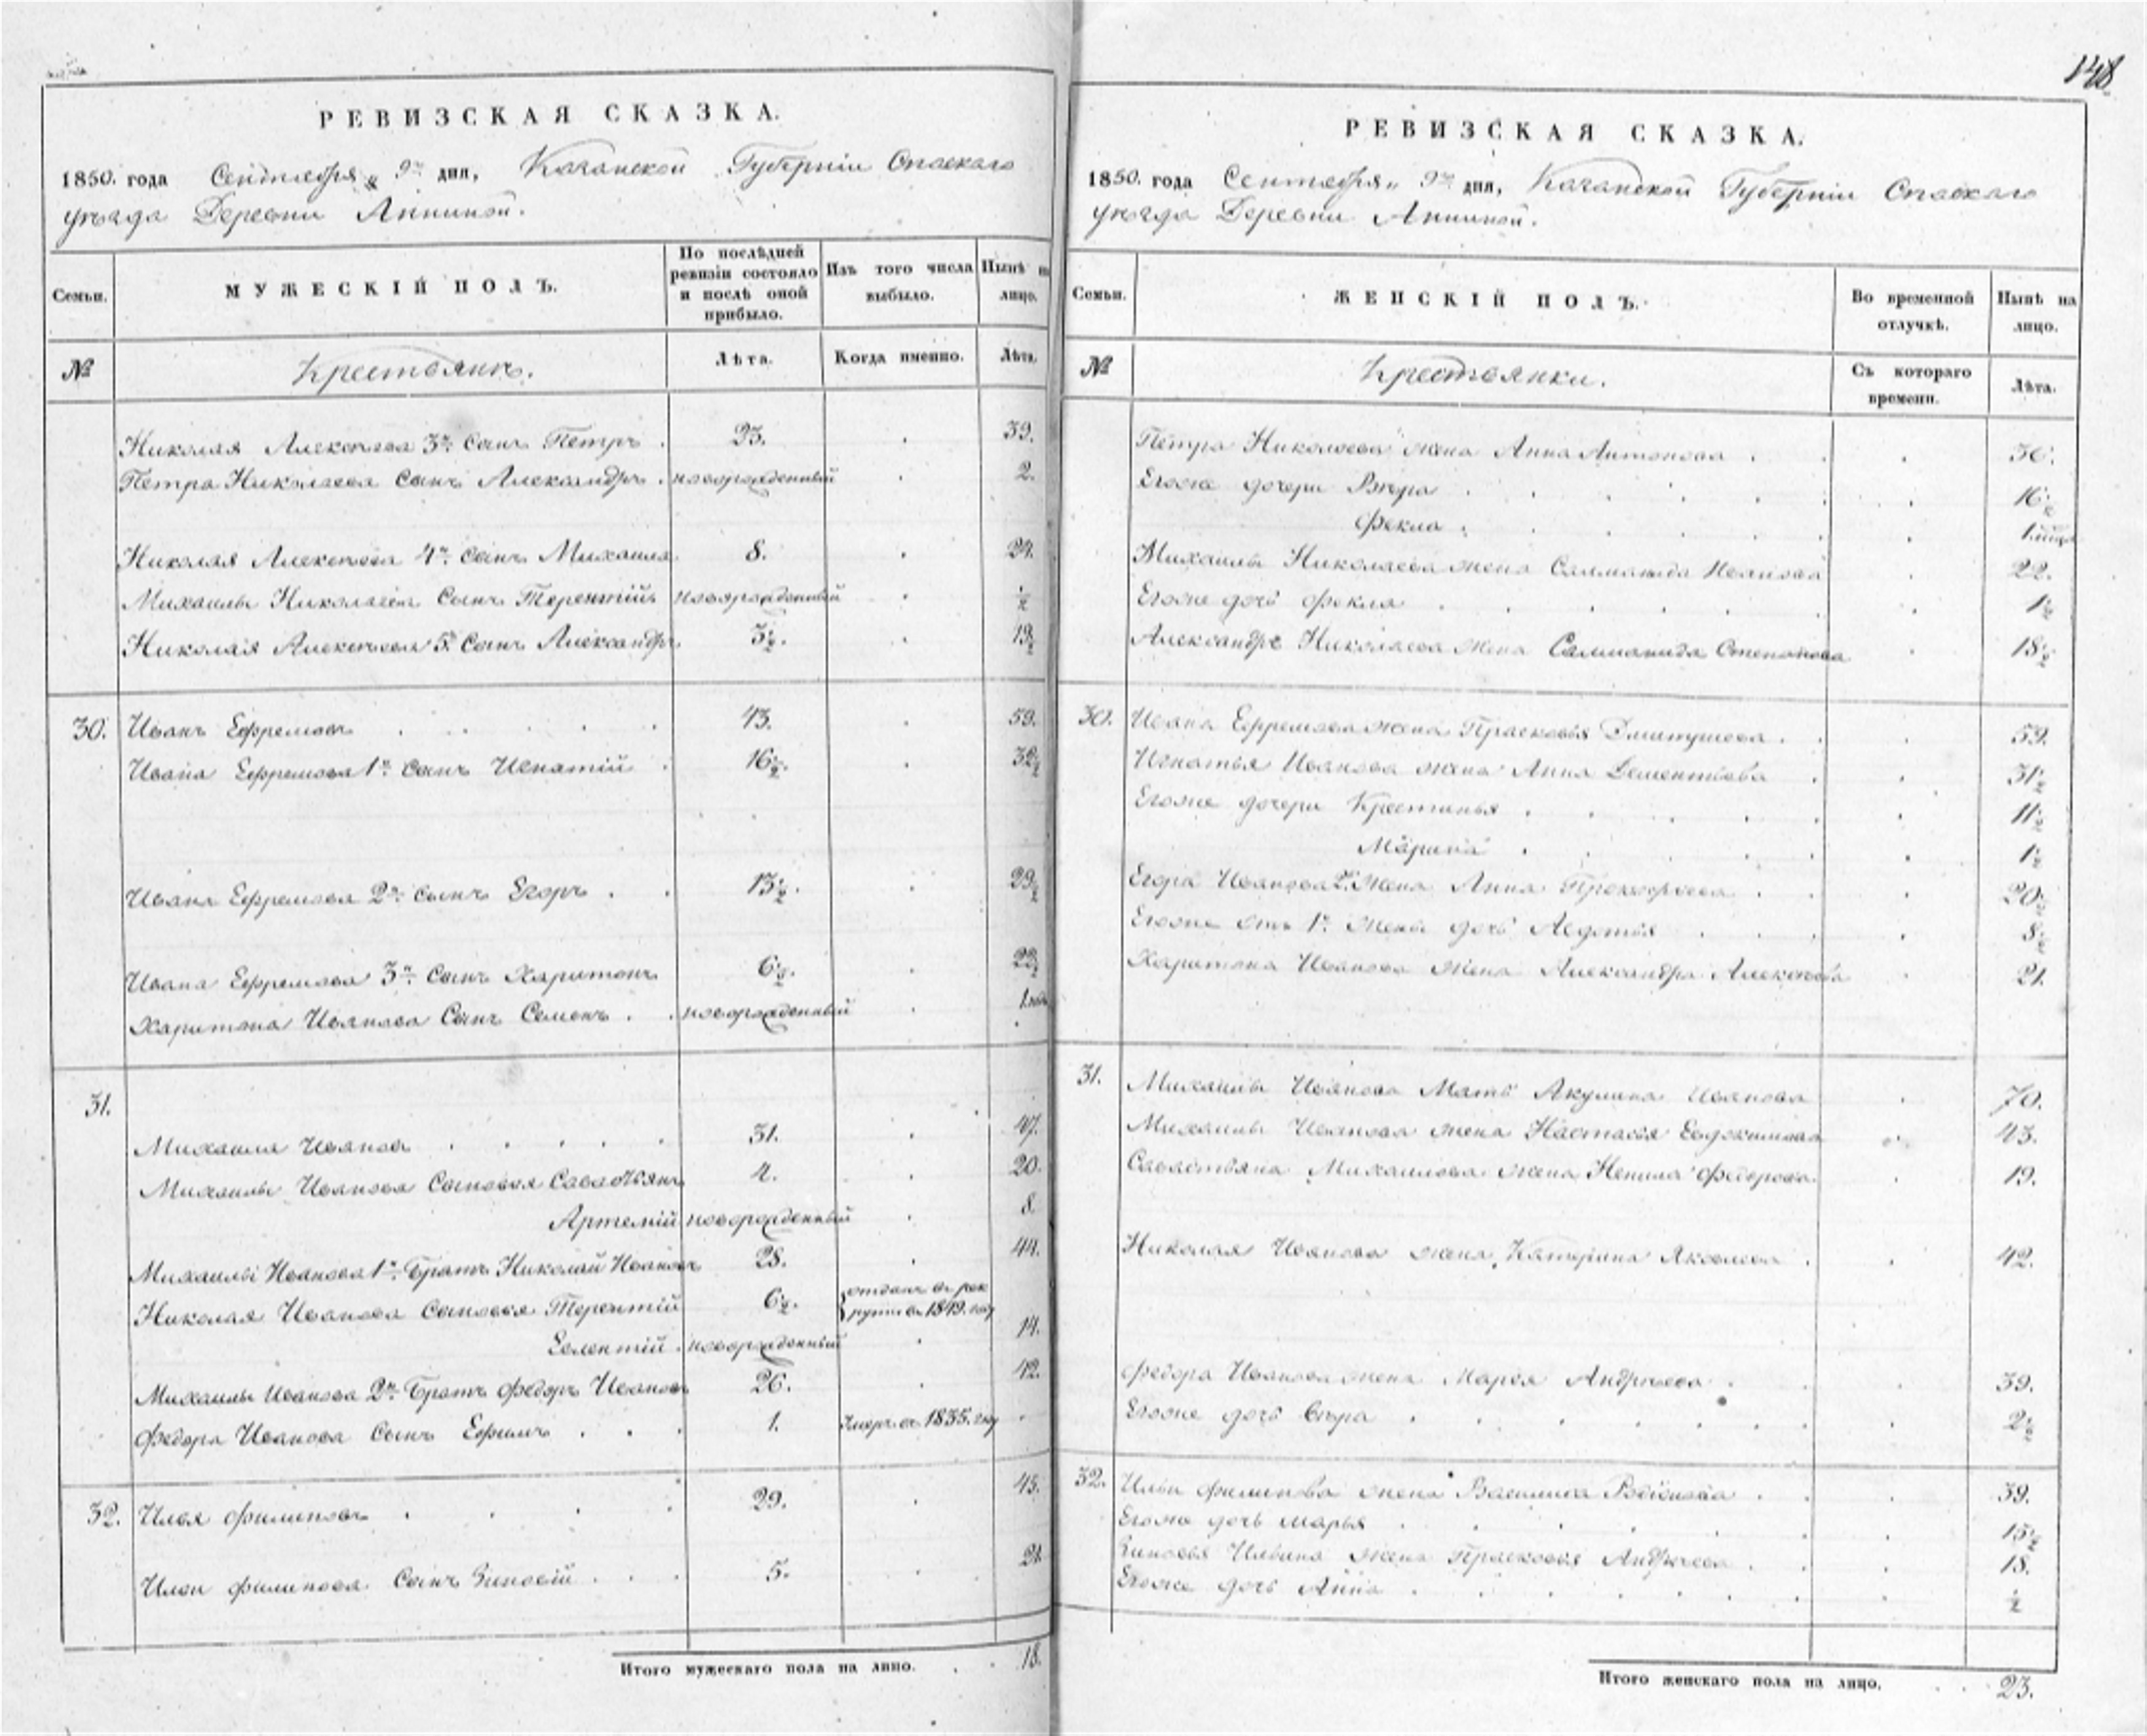 148
РЕВИЗСКАЯ СКАЗКА.
1850. года Сентября „ 9го дня, Казанской Губерніи Спаскаго
уѣзда Деревни Анниной.
Семьи.
МУЖЕСКІЙ ПОЛЪ.
По послѣдней ревизіи состояло и послѣ оной прибыло.
Изъ того числа выбыло.
Нынѣ на лицо.
№
Крестьянъ.
Лѣта.
Когда именно.
Лѣта.
Николая Алексѣева 3й сынъ Петръ . 23. . 39.
Петра Николаева сынъ Александръ . новорожденный . 2.
Николая Алексѣева 4й сынъ Михаила 8. . 24.
Михаилы Николаева сынъ Терентій новорожденный . ½
Николая Алексѣева 5й сынъ Александръ 3½. . 19½
30. Иванъ Ефремовъ . . . . . 43. . 59.
Ивана Ефремова 1й сынъ Игнатій . 16½. . 32½
Ивана Ефремова 2й сынъ Егоръ . . 13½. . 29½
Ивана Ефремова 3й сынъ Харитонъ 6½. . 22½
Харитона Иванова сынъ Семенъ . . новорожденный .
31.
Михаила Ивановъ . . . . . 31. . 47.
Михаилы Иванова сыновья Савастьянъ 4. . 20.
Артемій новорожденный . 8.
Михаилы Иванова 1й братъ Николай Ивановъ 28. . 44.
Николая Иванова сыновья Терентій 6½. отданъ въ рек
рути въ 1849. году
Евлентій . новорожденный . 14.
Михаилы Иванова 2й братъ Федоръ Ивановъ 26. . 42.
Федора Иванова сынъ Ефимъ . . . 1. Умеръ въ 1835. году .
32. Илья Филиповъ . . . . 29. . 45.
Ильи Филипова сынъ Зиновій . . . 5. . 21.
Итого мужескаго пола на лицо. . . 18.
РЕВИЗСКАЯ СКАЗКА.
1850. года Сентября „ 9го дня, Казанской Губерніи Спаскаго
уѣзда Деревни Анниной.
Семьи.
ЖЕНСКІЙ ПОЛЪ.
Во временной отлучкѣ.
Нынѣ на лицо.
№
Крестьянки.
Съ котораго времени.
Лѣта.
Петра Николаева жена Анна Антонова . . . 36.
Егоже дочери Вѣра . . . . . . 16½
Фекла . . . . . .
Михаилы Николаева жена Саломанида Иванова . 22.
Егоже дочь Фекла . . . . . . 1½
Александра Николаева жена Саломанида Степанова . 18½
30. Ивана Ефремова жена Прасковья . . . 59.
Игнатья Иванова жена Анна Дементьева . . 31½
Егоже дочери Крестинья . . . . . . 11½
Марина . . . . . 1½
Егора Иванова 2я жена Анна Прокофьева . . . 20½
Егоже отъ 1й жены дочь Авдотья . . . . 8½
Харитона Иванова жена Александра Алексѣева . 21.
31. Михаилы Иванова мать Акулина Иванова . 70.
Михаилы Иванова жена Настасья Евдокимова . 43.
Савастьяна Михаилова жена Ненила Федорова . 19.
Николая Иванова жена Катерина Яковлева . . 42.
Федора Иванова жена Марья Андрѣева . . . 39.
Егоже дочь Вѣра . . . . . . . 2½
32. Ильи Филипова жена Василиса Родіонова . . . 39.
Егоже дочь Марья . . . . . . 15½
Зиновья Ильина жена Прасковья Андрѣева . . . 18.
Егоже дочь Анна . . . . . . . ½
Итого женскаго пола на лицо. . . 23.